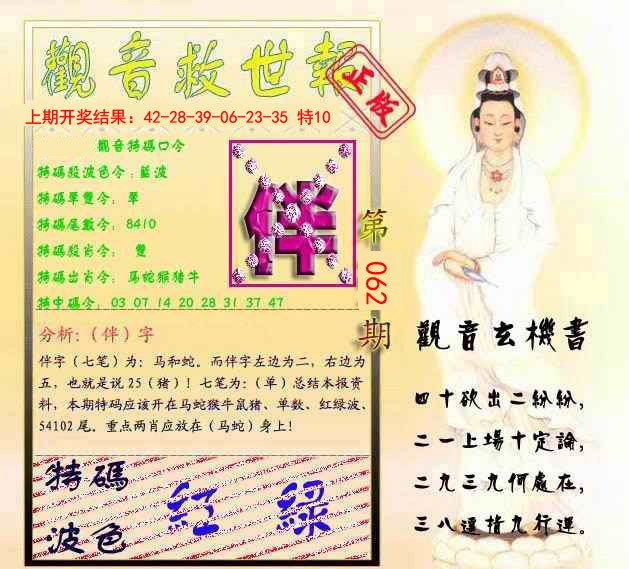 觀音救世報
正版
上期开奖结果：42-28-39-06-23-35 特10
觀音特碼口令
特碼段波色令：藍波
特碼單雙令： 單
特碼尾數令： 8410
特碼段肖令： 雙
特碼出肖令： 马蛇猴猪牛
特中碼令： 03 07 14 20 28 31 37 47
伴
第
062
期
分析：（伴）字
伴字（七笔）为：马和蛇。而伴字左边为二，右边为
五，也就是说 25（猪）！七笔为：（单）总结本报资
料，本期特码应该开在马蛇猴牛鼠猪、单数、红绿波、
54102 尾。重点两肖应放在（马蛇）身上！
特碼
波色
紅 綠
觀音玄機書
四十欲出二紛紛，
二一上場十定論，
二九三九何處在，
三八運指九行運。